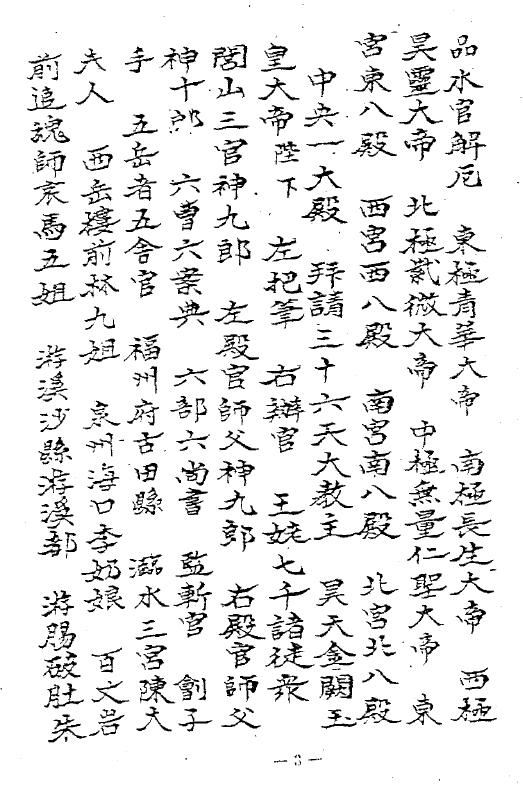 品水官解厄　東極青華大帝　南極長生大帝　西極
昊靈大帝　北極紫微大帝　中極無量仁聖大帝　東
宮東八殿　西宮西八殿　南宮南八殿　北宮北八殿
中央一大殿　拜請三十六天大教主　昊天金闕玉
皇大帝陛下　左把筆　右辦官　王姥七千諸徒衆
閭山三官神九郎　左殿官師父神九郎　右殿官師父
神十郎　六曹六案典　六部六尚書　監斬官　劊子
手　五岳者五舍官　福州府古田縣　臨水三宮陳大
夫人　西岳樓前林九姐　泉州海口李奶娘　百丈岩
前追魂師哀馬五姐　游溪沙縣游溪部　游腸破肚朱
—3—